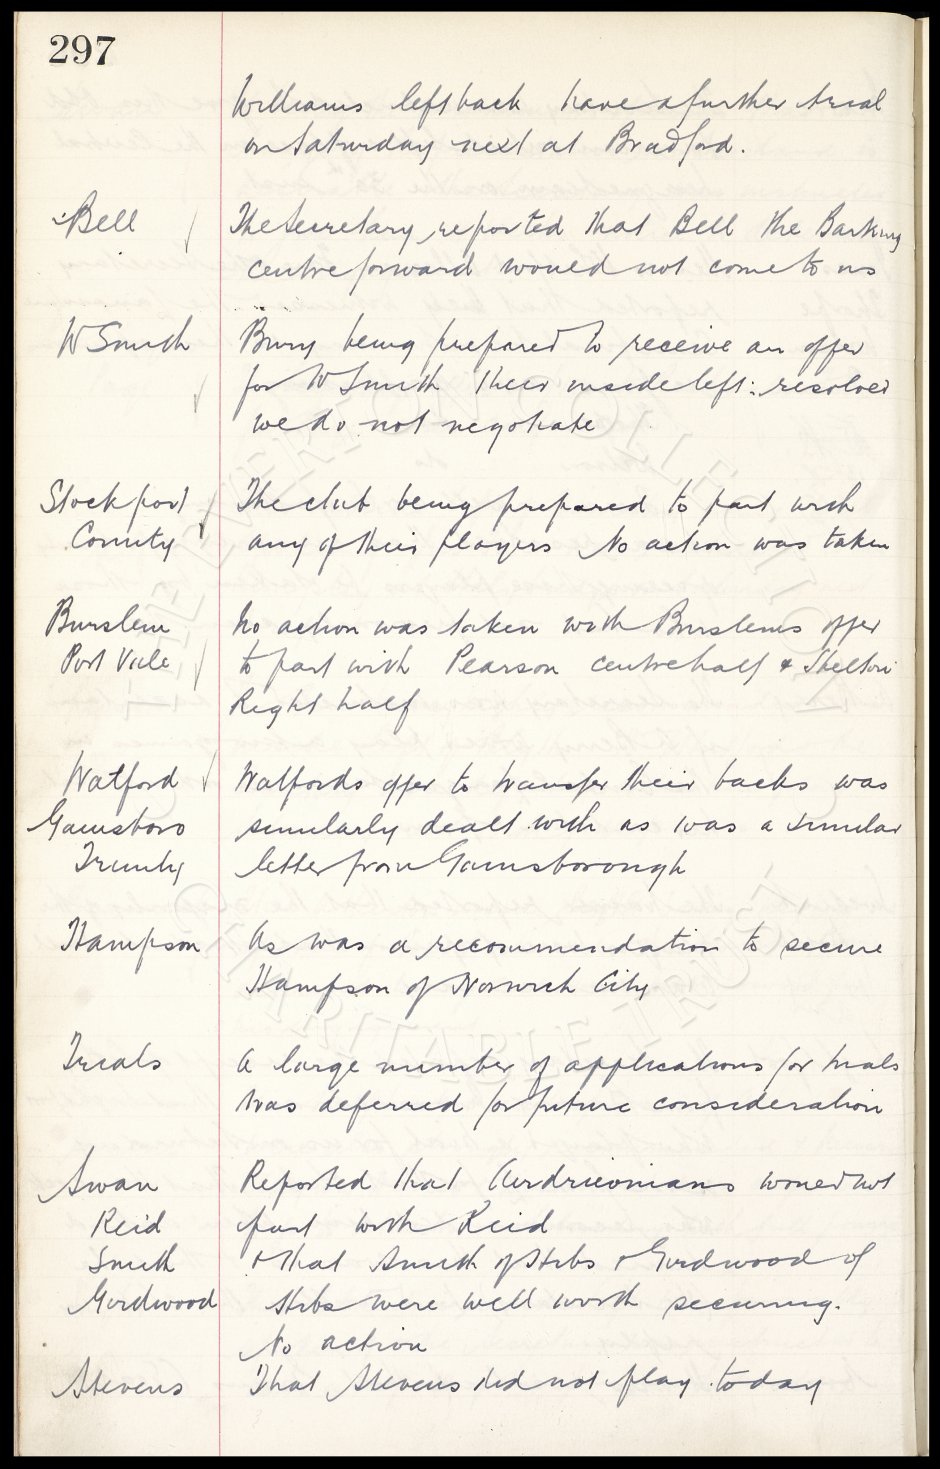 297
Williams left back have a further trial
on Saturday next at Bradford.
Bell The Secretary reported that Bell the Barking
centre forward would not come to us
W Smith Bury being prepared to receive an offer
for W Smith their inside left: resolved
we do not negotiate
Stockport The club being prepared to part with
County any of their players No action was taken
Burslem No action was taken with Burslems offer
Port Vale to part with Pearson centre half & Shelton
Right half
Watford Watfords offer to transfer their backs was
Gainsboro similarly dealt with as was a similar
Trinity letter from Gainsborough
Hampson As was a recommendation to secure
Hampson of Norwich City
Trials A large number of applications for trials
was deferred for future consideration
Swan Reported that Airdrieonians would not
Reid part with Reid
Smith & that Smith of Hibs & Girdwood of
Girdwood Hibs were well worth securing.
No action
Stevens That Stevens did not play today